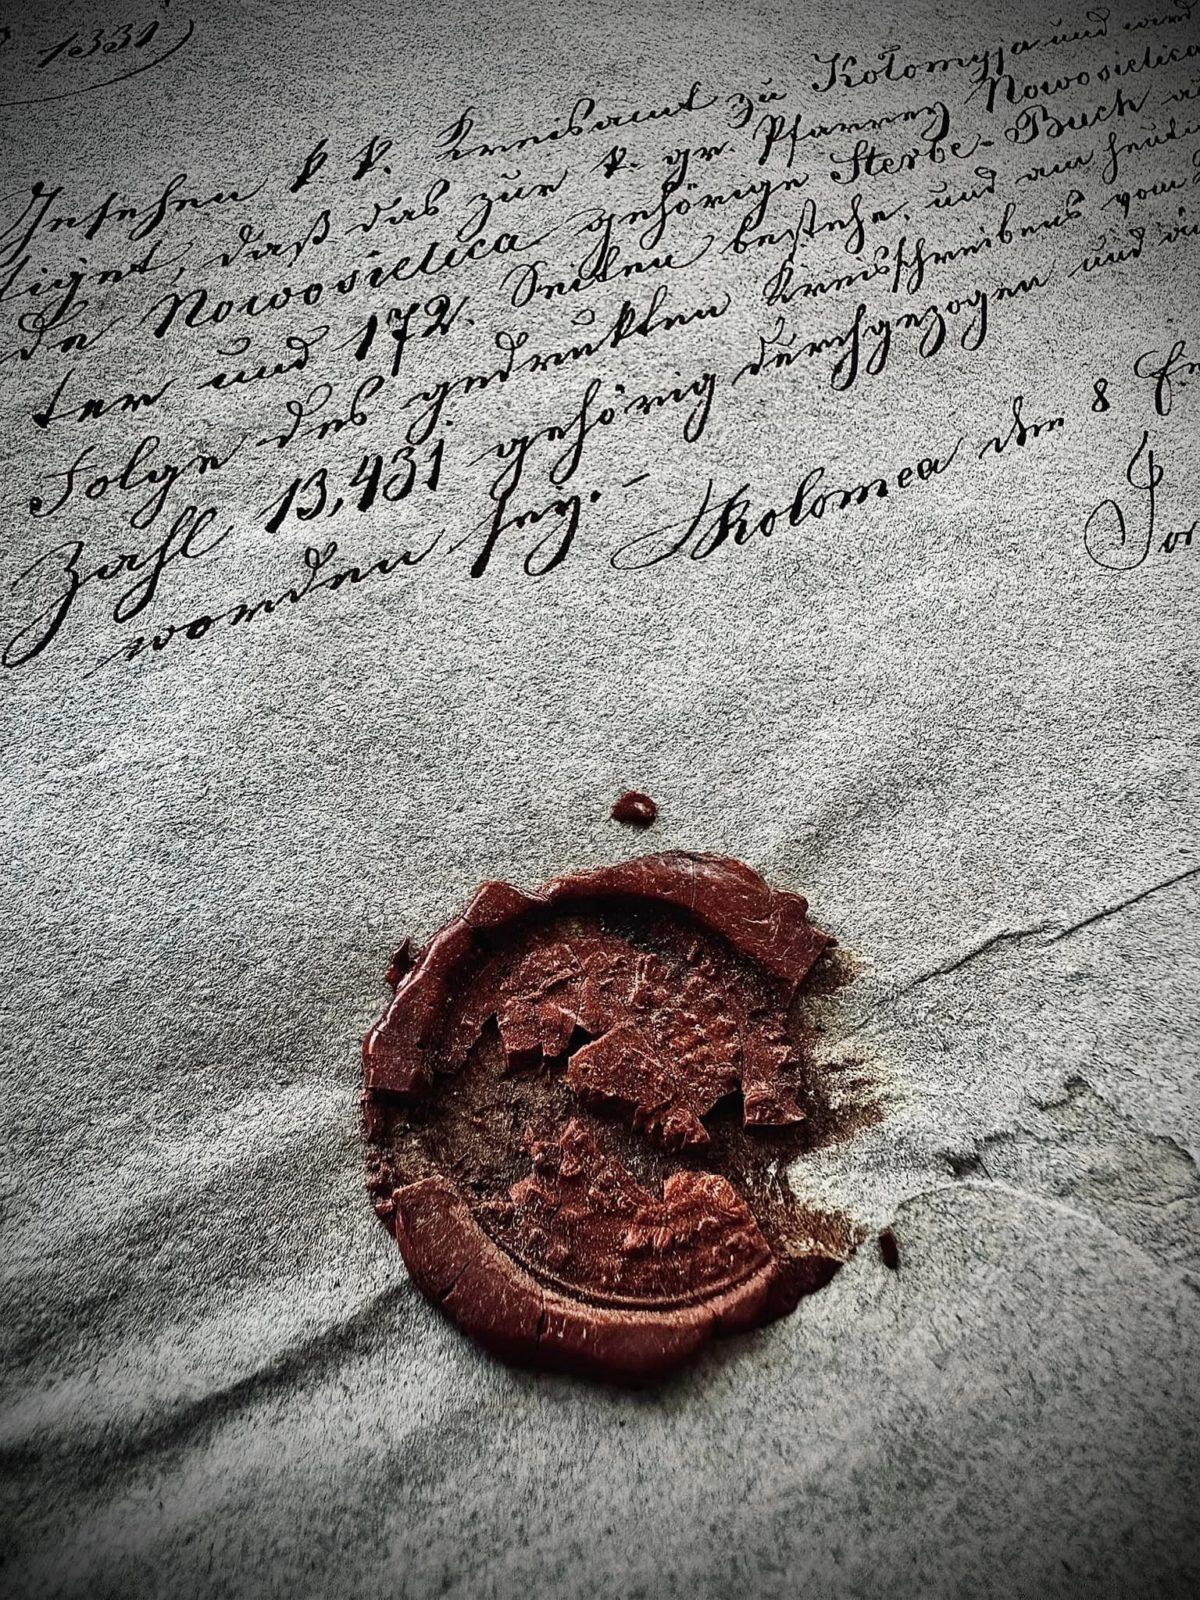 1331
k. k. Kreisamt zu Kołomyja und wird
tiget, daß das zur k. gr. Pfarrey Nowosielica
de Nowosielica gehörige Sterbe-Buch
ter und 172. Seiten bestehe, und am heuti
Folge des gedrukten Kreisschreibens vom
Zahl 13,431 gehörig durchgezogen und
worden sey. – Kolomea den 8